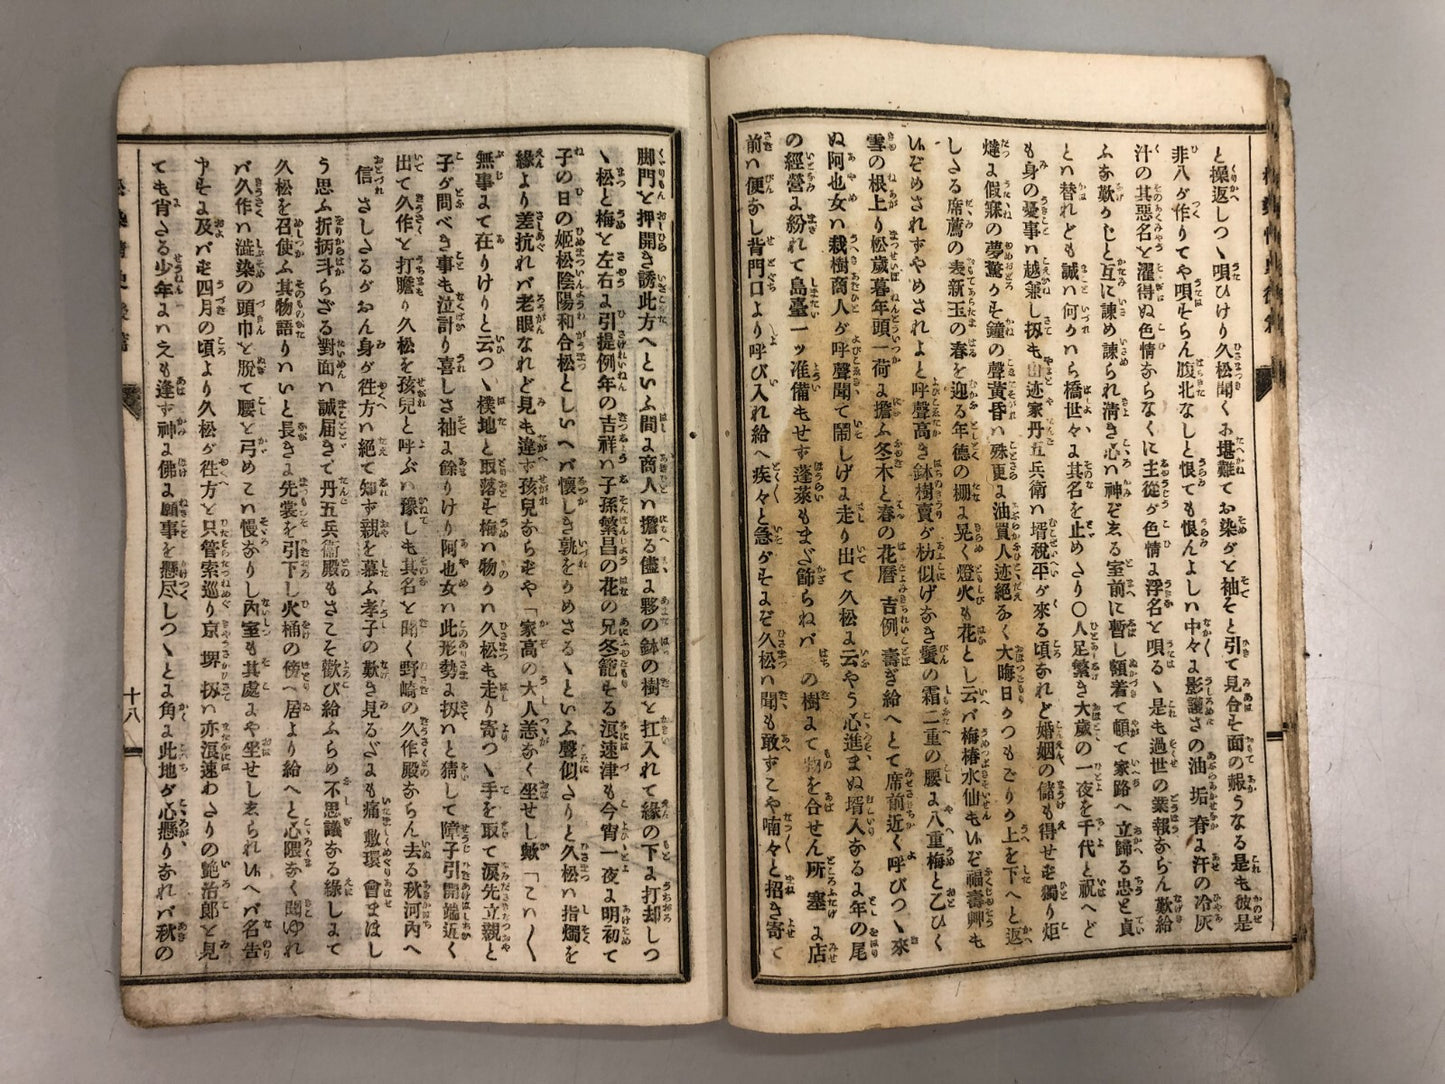 と操返しつゝ唄ひけり久松聞くお堪難てお染がと袖そと引て見合そ面の赧うなる是も彼是
非八が作りてや唄そらん腹北なしと恨ても恨んよしハ中々よ影護さの油垢脊よ汗の冷灰
汁の其惡名と濯得ぬ色情あらなくに主從が色情よ浮名と唄るゝ是も過世の業報あらん歎給
ふあ歎かじと互に諫め諫られ淸き心ハ神ぞゑる室前に暫し額着て頓て家路へ立歸る忠と貞
とハ替れども誠ハ何かハら橋世々よ其名を止めさり〇人足繁き大歲の一夜を千代と祝へど
も身の憂事ハ越兼し扨も山迹家丹五兵衛の壻稅平が來る頃あれど婚姻の儲も得せむ獨り炬
燵よ假寐の夢驚かそ鐘の聲黃昏ハ殊更よ油買人迹絕るく大晦日かつもごりか上を下へと返
しさる席薦の表新玉の春を迎る年德の棚よ晃く燈火も花とし云バ梅椿水仙もいぞ福壽舁も
いぞめされずやめされよと呼聲高き鉢樹賣が朸似げあき鬢の霜二重の腰よ八重梅と乙ひく
雪の根上り松歲暮年頭一荷よ擔ふ冬木と春の花曆吉例壽ぎ給へとて席前近く呼びつゝ來
ぬ阿也女ハ栽樹商人が呼聲聞て鬧しげよ走り出て久松よ云やう心進まぬ壻人あるよ年の尾
の經營よ紛れて島臺一ッ准備もせず蓬萊もまだ飾らねバ の樹まて物を合せん所塞よ店
前ハ便あし背門口より呼び入れ給へ疾々と急がそよぞ久松ハ聞も敢ずこや喃々と招き寄て
脚門と押開き誘此方へといふ間よ商人ハ擔る儘よ夥の鉢の樹と扛入れて緣の下よ打却しつ
ゝ松と梅と左右よ引提例年の吉祥ハ子孫繁昌の花の兄冬籠そる浪速津も今宵一夜よ明初て
子の日の姬松陰陽和合松としいへバ懷しき孰をかめさるゝといふ聲似さりと久松ハ指燭を
緣より差抗れバ老眼なれど見も違ず孩兒あらむや「家高の大人恙あく坐せし歟「こハ〳〵
無事まて在りけりと云つゝ撲地と取落そ梅ハ物かハ久松も走り寄つゝ手を取て淚先立親と
子が問べき事も泣計り喜しさ袖よ餘りけり阿也女ハ此形勢よ扨ハと猜して障子引開端近く
出て久作と打瞻り久松を孩兒と呼ぶハ豫しも其名と聞く野崎の久作殿あらん去る秋河內へ
信さしさるがおん身が徃方ハ絕て知ず親を慕ふ孝子の歎き見るざよも痛敷環會まほし
う思ふ折柄斗らざる對面ハ誠屆きて丹五兵衞殿もさこそ歡び給ふらめ不思議ある緣しまて
久松を召使ふ其物語りハいと長きよ先裳を引下し火桶の傍へ居より給へと心隈あく聞ゆれ
バ久作ハ澁染の頭巾と脫て腰と弓めこハ慢ありし內室も其處よや坐せしゑられいへバ名告
中そよ及バむ四月の頃より久松が徃方と只管索巡り京堺扨ハ亦浪速わさりの艷治郞と見
ても肯さる少年よハえも逢ず神よ佛よ願事を懸尽しつゝとよ角よ此地が心懸りあれバ秋の
十八